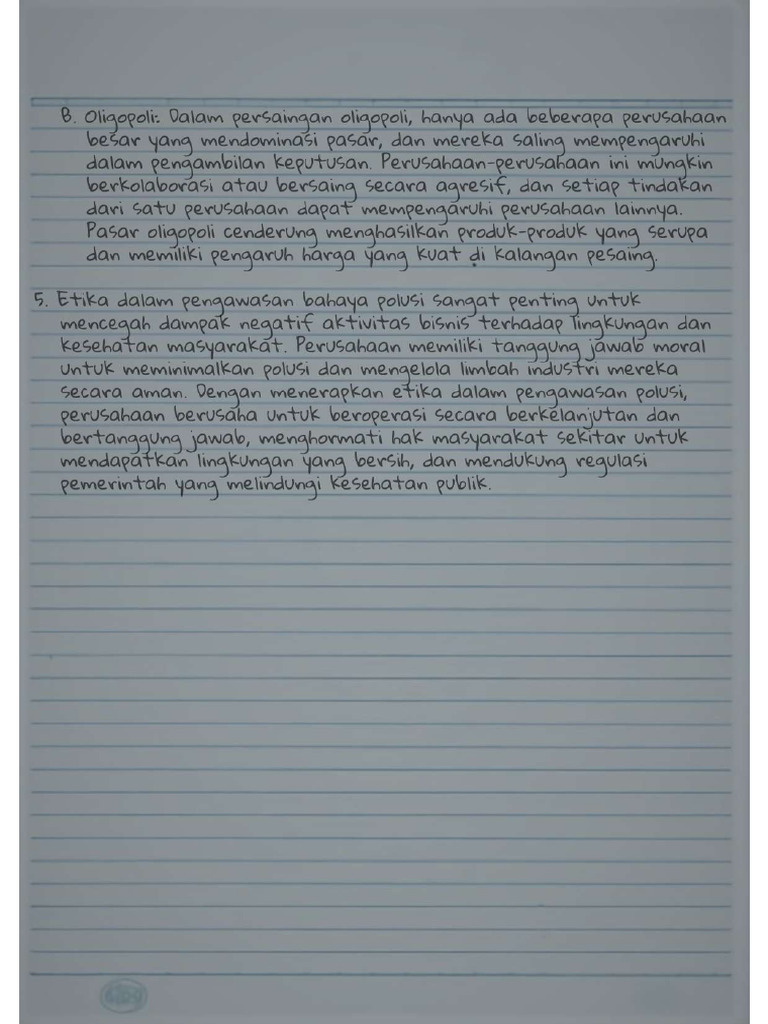 B. Oligopoli: Dalam persaingan oligopoli, hanya ada beberapa perusahaan
besar yang mendominasi pasar, dan mereka saling mempengaruhi
dalam pengambilan keputusan. Perusahaan-perusahaan ini mungkin
berkolaborasi atau bersaing secara agresif, dan setiap tindakan
dari satu perusahaan dapat mempengaruhi perusahaan lainnya.
Pasar oligopoli cenderung menghasilkan produk-produk yang serupa
dan memiliki pengaruh harga yang kuat di kalangan pesaing.
5. Etika dalam pengawasan bahaya polusi sangat penting untuk
mencegah dampak negatif aktivitas bisnis terhadap lingkungan dan
kesehatan masyarakat. Perusahaan memiliki tanggung jawab moral
untuk meminimalkan polusi dan mengelola limbah industri mereka
secara aman. Dengan menerapkan etika dalam pengawasan polusi,
perusahaan berusaha untuk beroperasi secara berkelanjutan dan
bertanggung jawab, menghormati hak masyarakat sekitar untuk
mendapatkan lingkungan yang bersih, dan mendukung regulasi
pemerintah yang melindungi kesehatan publik.